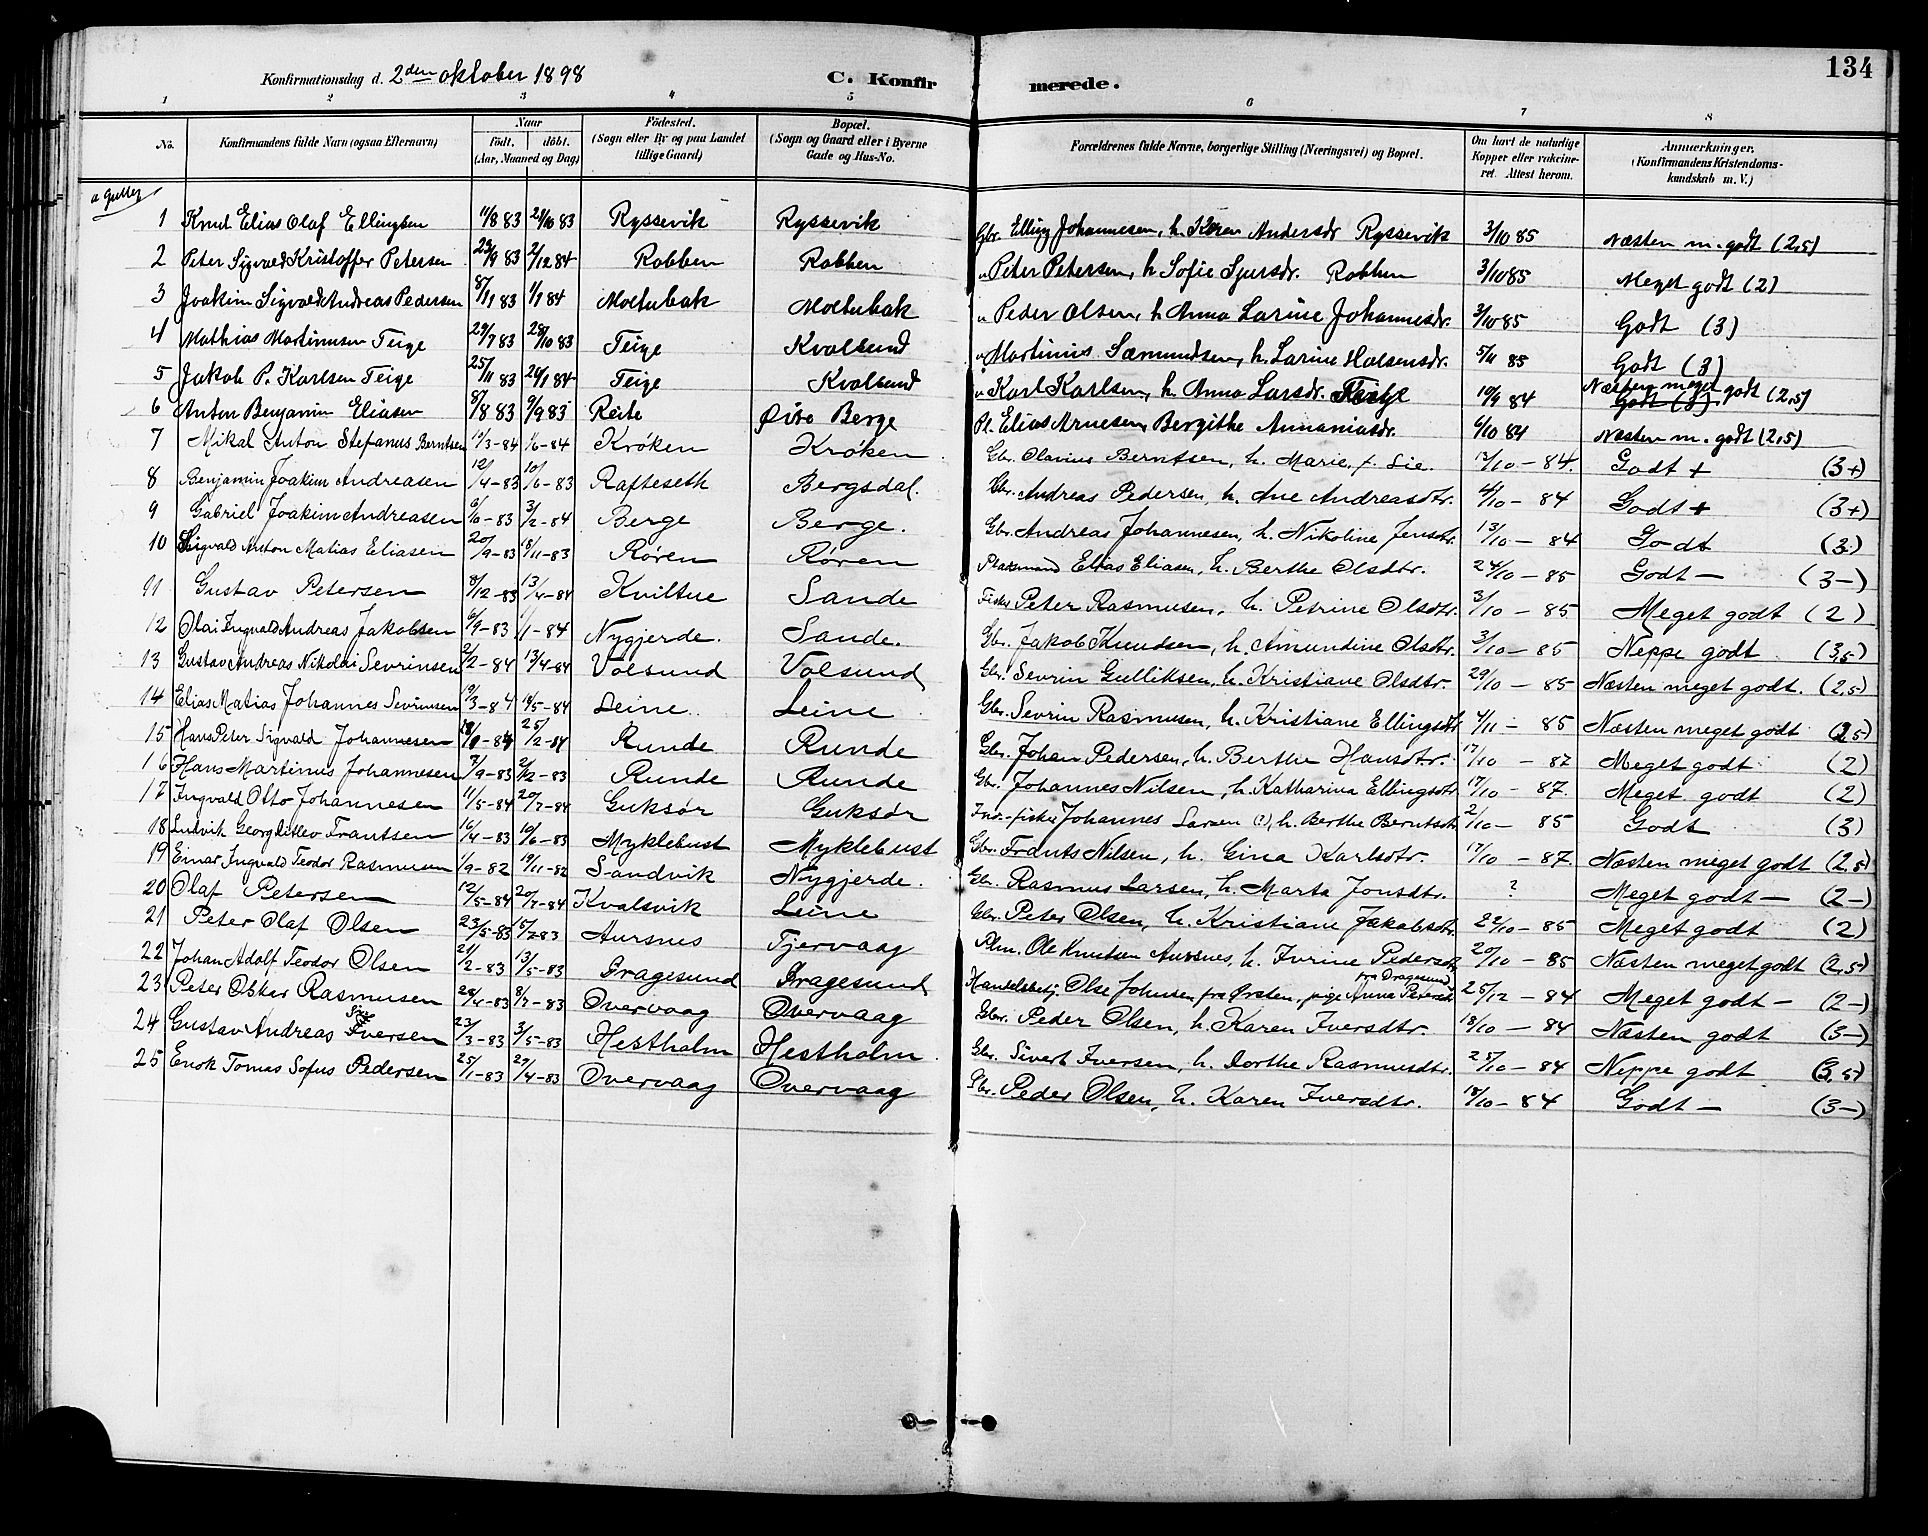 134
Konfirmationsdag d. 2den oktober 1898 C. Konfirmerede.
1 2 3 4 5 6 7 8
No. Konfirmandens fulde Navn (ogsaa Efternavn) Naar født. døbt. (Aar, Maaned og Dag) Fødested. (Sogn eller By og paa Landet tillige Gaard) Bopæl. (Sogn og Gaard eller i Byerne Gade og Hus-No. Forældrenes fulde Navne, borgerlige Stilling (Næringsvei) og Bopæl. Om havt de naturlige Kopper eller vakcineret. Attest herom. Anmærkninger. (Konfirmandens Kristendomskundskab m. V.)
a Gutter
1 Knut Elias Olaf Ellingsen 11/8 83 21/10 83 Ryssevik Ryssevik Gbr. Elling Johannesen, h. Karen Andersdr Ryssevik 3/10 85 Næsten m. godt (2,5)
2 Peter Sigvald Kristoffer Petersen 23/9 83 2/12 84 Robben Robben " Peter Petersen, h Sofie Sjursdr. Robben 3/10 85 Meget godt (2)
3 Joakim Sigvald Andreas Pedersen 8/11 83 1/1 84 Moltubak Moltubak " Peder Olsen, h Anna Larine Johannesdr. 3/10 85 Godt (3)
4 Mathias Martinusen Teige 29/7 83 28/10 83 Teige Kvalsund " Martinus Sæmundsen, h. Larine Halsensdr. 5/11 85 Godt (3)
5 Jakob P. Karlsen Teige 25/11 83 26/1 84 Teige Kvalsund " Karl Karlsen, h. Anna Larsdr. Teige 19/9 84 Næsten meget godt (2,5)
6 Anton Benjamin Eliasen 8/8 83 9/9 83 Reite Øvre Berge Pl. Elias Arnesen, Bergithe Annaniasdr. 6/10 84 Næsten m. godt (2,5)
7 Mikal Anton Stefanus Berntsen 11/3-84 1/6-84 Krøken Krøken Gbr. Olavius Berntsen, h. Marie f. Lie. 17/10-84. Godt + (3+)
8 Benjamin Joakim Andreasen 12/4-83 10/6-83 Rafteseth Bergsdal. Gbr. Andreas Pedersen, h. Ane Andreasdtr. 4/10-84 Godt + (3+)
9 Gabriel Joakim Andreasen 6/10-83 3/2-84 Berge Berge. Gbr. Andreas Johannesen, h. Nikoline Jensdtr. 13/10-84 Godt (3)
10 Sigvald Anton Matias Eliasen 20/9-83 18/11-83 Røren Røren Pladsmand Elias Eliasen, h. Berthe Olsdtr. 24/10-85 Godt - (3-)
11 Gustav Petersen 8/12-83 13/4-84 Kviltue Sande Fisker Peter Rasmusen, h. Petrine Olsdtr. 3/10-85 Meget godt (2)
12 Olai Ingvald Andreas Jakobsen 6/9-83 1/1-84 Nygjerde. Sande. Gbr. Jakob Knudsen, h. Amundine Olsdtr. 3/10-85 Neppe godt (3,5)
13 Gustav Andreas Nikolai Sevrinsen 2/2-84 13/4-84 Volsund Volsund Gbr. Sevrin Gulliksen, h. Kristiane Olsdtr. 29/10-85 Næsten meget godt. (2,5)
14 Elias Matias Johannes Sevrinsen 19/3-84 18/5-84 Leine Leine Gbr. Sevrin Rasmusen, h. Kristiane Ellingsdtr 4/11-85 Næsten meget godt (2,5)
15 Hans Peter Sigvald Johannesen 84 25/2-84 Runde Runde Gbr. Johan Pedersen, h. Berthe Hansdtr. 17/10-87 Meget godt (2)
16 Hans Martinus Johannesen 7/9-83 2/12-83 Runde Runde Gbr. Johannes Nilsen, h. Katharina Ellingsdtr. 17/10-87. Meget godt (2)
17 Ingvald Otto Johannesen 11/5-84 20/7-84 Guksør Guksør Inr.-fisker Johannes Larsen (?), h. Berthe Berntsdtr 2/10-85 Godt (3)
18 Ludvik Georg Ditlev Frantsen 16/4-83 10/6-83 Myklebust Myklebust Gbr. Frants Nilsen, h. Gina Karlsdtr. 17/10-87. Næsten meget godt (2,5)
19 Einar Ingvald Teodor Rasmusen 1/9-82 19/11-82 Sandvik Nygjerde. Gbr. Rasmus Larsen, h. Marta Jonsdtr. ? Meget godt - (2-)
20 Olaf Petersen 12/5-84 20/7-84 Kvalsvik Leine Gbr. Peter Olsen, h. Kristiane Jakobsdtr. 22/10-85 Meget godt (2)
21 Peter Olaf Olsen 23/5-83 15/7-83 Aursnes Tjervaag Plm. Ole Knutsen Aursnes, h. Ivrine Pedersdtr 20/10-85 Næsten meget godt (2,5)
22 Johan Adolf Teodor Olsen 21/2-83 13/5-83 Dragesund Dragesund Handelsbetj. Olse Johnsen fra Ørsten, pige Anna Petersdr fra Dragesund 25/12-84 Meget godt - (2-)
23 Peter Oskar Rasmusen 28/4-83 8/7-83 Overvaag Overvaag Gbr. Peder Olsen, h. Karen Iversdtr. 18/10-84 Næsten godt (3-)
24 Gustav Andreas Iversen 23/3-83 3/5-83 Hestholm Hestholm. Gbr. Sivert Iversen, h. Dorthe Rasmusdtr. 25/10-84 Neppe godt (3,5)
25 Enok Tomas Sofus Pedersen 25/1-83 29/4-83 Overvaag Overvaag Gbr. Peder Olsen, h. Karen Iversdtr. 18/10-84 Godt - (3-)